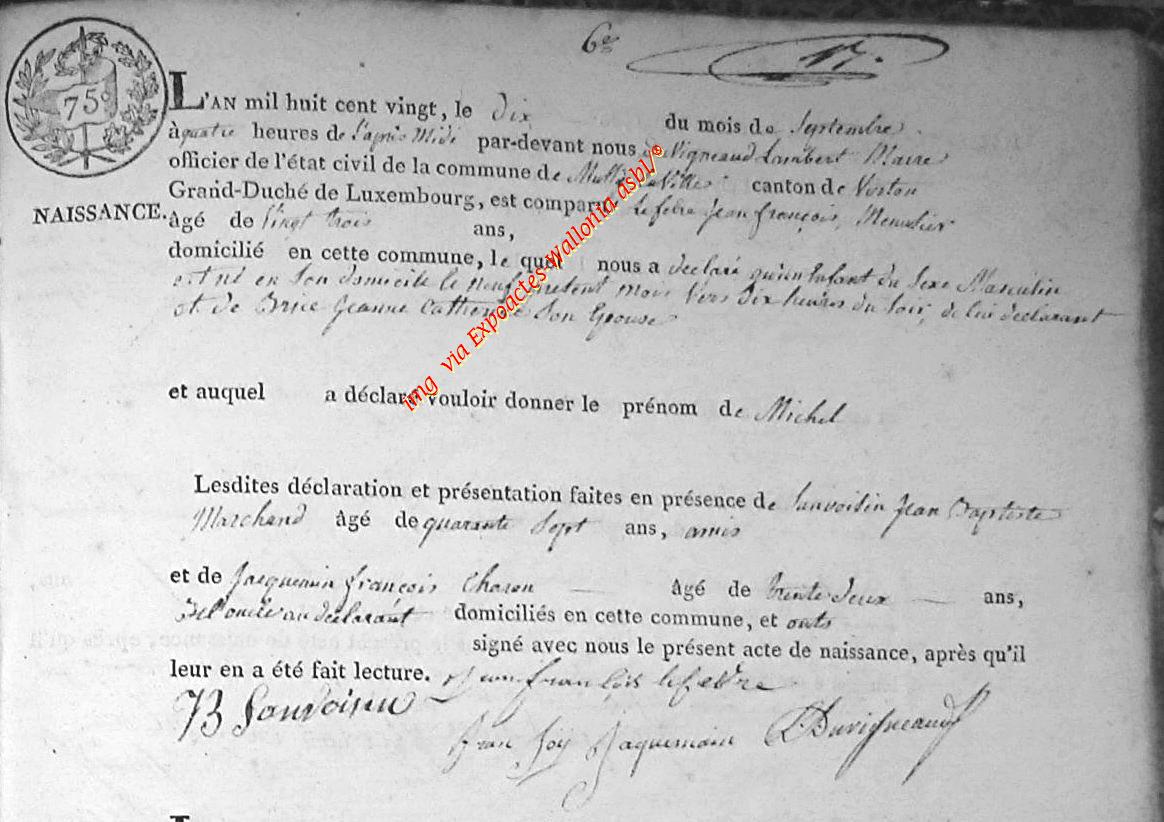 6e 17.
75c
L'AN mil huit cent vingt, le dix du mois de Septembre
à quatre heures de l'après Midi par-devant nous Duvigneaud Lambert Maire
officier de l'état civil de la commune de canton de Virton
Grand-Duché de Luxembourg, est comparu Lefevre Jean françois, Menusier
NAISSANCE.
âgé de Vingt trois ans,
domicilié en cette commune, le quel nous a declaré qu'un Enfant du Sexe Masculin
est né en Son domicile le neuf présent mois vers dix heures du soir, de lui declarant
et de Brice Jeanne Catherine Son Epouse
et auquel a déclaré vouloir donner le prénom de Michel
Lesdites déclaration et présentation faites en présence de Sauvoisin Jean Baptiste
Marchand âgé de quarante Sept ans, amis
et de Jacquemin françois Charon âgé de trente deux ans,
Bel oncle au declarant domiciliés en cette commune, et onts
signé avec nous le présent acte de naissance, après qu'il
leur en a été fait lecture. Jean françois lefevre
JB Sauvoisin
fran soy Jaquemain LDuvigneaud
img via Expoactes Wallonia asbl/©